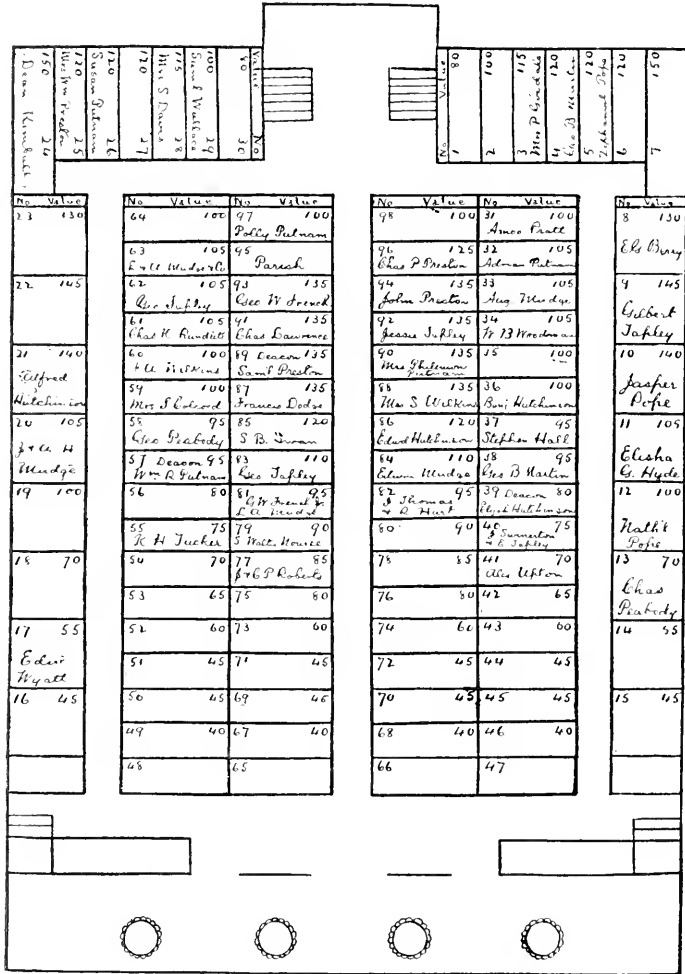 Value No
80 30
100 29
Sam'l Wallace
115 28
Mrs S Davis
120 27
120 26
Susan Putnam
120 25
Mrs Wm Preston
150 24
Dean Kimball
No Value
1 80
2 100
3 115
Mrs P
4 120
Geo B Martin
5 120
Pope
6 120
7 150
No Value
23 130
22 145
21 140
Alfred
Hutchinson
20 105
J & A H
Mudge
19 100
18 70
17 55
Edw
Wyatt
16 45
No Value
64 100
63 105
E & A Mudge & Co
62 105
Geo Tapley
61 105
Chas H
60 100
Wilkins
59 100
Mrs
58 95
Geo Peabody
57 Deacon 95
Wm R Putnam
56 80
55 75
K H Tucker
54 70
53 65
52 60
51 45
50 45
49 40
48
No Value
97 100
Polly Putnam
95
Parish
93 135
Geo W French
91 135
Chas Lawrence
89 Deacon 135
Sam'l Preston
87 135
Francis Dodge
85 120
S B Swan
83 110
Geo Tapley
81 95
G W French &
L A Mudge
79 90
S Walter Nourse
77 85
J & G P Roberts
75 80
73 60
71 45
69 45
67 40
65
No Value
98 100
96 125
Chas P Preston
94 135
John Preston
92 135
Jessie Tapley
90 135
Mrs Philemon
Putnam
88 135
Mrs S Wilkins
86 120
Edwd Hutchinson
84 110
Edwin Mudge
82 95
J Thomas
& R Hart
80 90
78 85
76 80
74 60
72 45
70 45
68 40
66
No Value
31 100
Amos Pratt
32 105
Adrian Putnam
33 105
Aug Mudge
34 105
W B Woodman
35 100
36 100
Benj Hutchinson
37 95
Stephen Hall
38 95
Geo B Martin
39 Deacon 80
Elijah Hutchinson
40 75
J
& E Tapley
41 70
Alex Upton
42 65
43 60
44 45
45 45
46 40
47
No Value
8 130
Eb Berry
9 145
Gilbert
Tapley
10 140
Jasper
Pope
11 105
Elisha
G. Hyde
12 100
Nath'l
Pope
13 70
Chas
Peabody
14 55
15 45